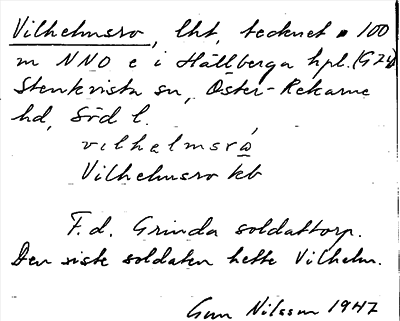 Vilhelmsro, lht, tecknet • 100
m NNO e i Hällberga hpl. (G74)
Stenkvista sn, Öster-Rekarne
hd, Söd l.
vilhelmsró
Vilhelmsro kb
F.d. Grinda soldattorp.
Den siste soldaten hette Vilhelm.
Gun Nilsson 1947